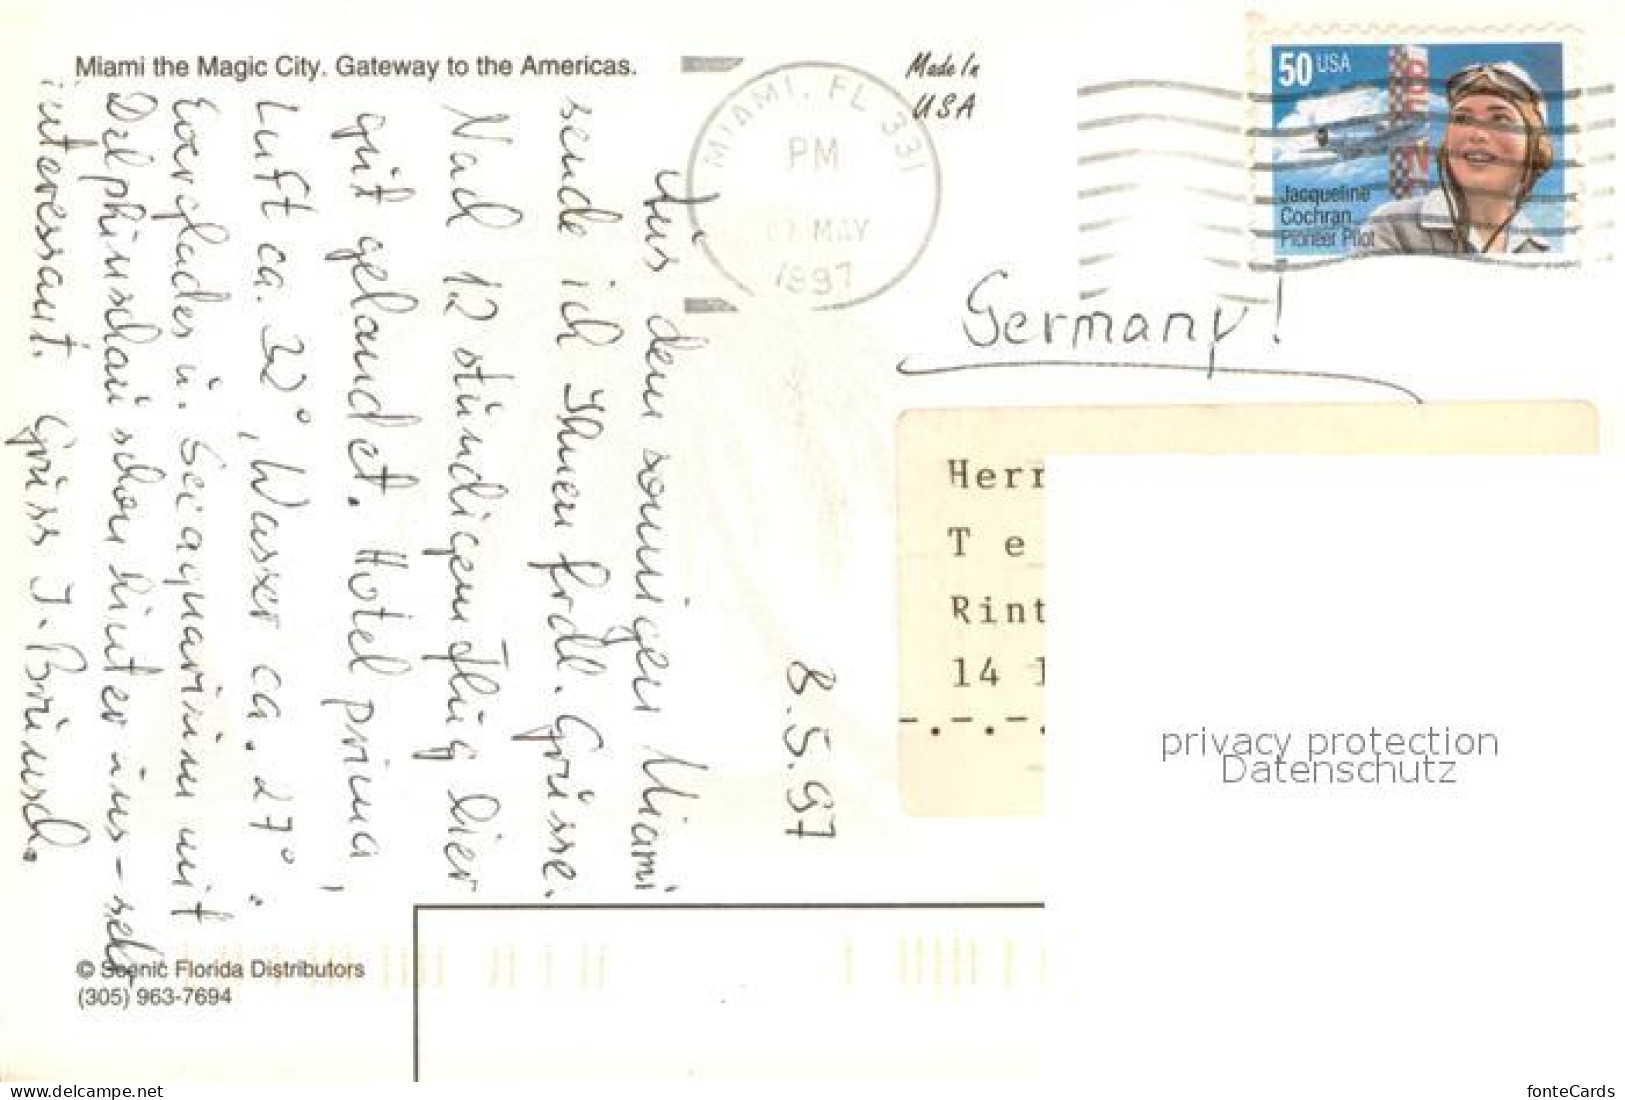 Miami the Magic City. Gateway to the Americas.
Made In
USA
MIAMI, FL 331
PM
MAY
1997
50 USA
Jacqueline
Cochran
Pioneer Pilot
Germany!
8.5.97
Aus dem sonnigen Miami
sende ich Ihnen frdl. Grüsse.
Nach 12 stündigem Flug hier
gut gelandet. Hotel prima,
Luft ca. 32°, Wasser ca. 27°.
Everglades u. Seaquarium mit
Delphinschau schon hinter uns - sehr
interessant. Gruss J. Brünsch.
Herr
T e
Rint
14
-.-.-.
privacy protection
Datenschutz
© Scenic Florida Distributors
(305) 963-7694
www.delcampe.net
fonteCards